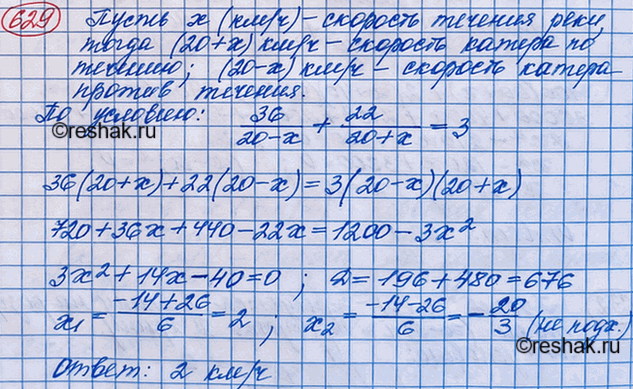 629 Пусть x (км/ч) – скорость течения реки,
тогда (20+x) км/ч – скорость катера по
течению; (20-x) км/ч – скорость катера
против течения.
По условию: 36/(20-x) + 22/(20+x) = 3
©reshak.ru ©reshak.ru
36(20+x)+22(20-x)=3(20-x)(20+x)
720+36x+440-22x=1200-3x²
3x²+14x-40=0 ; D=196+480=676
x₁=(-14+26)/6=2 ; x₂=(-14-26)/6=-20/3 (не подх.)
©reshak.ru ©reshak.ru
Ответ: 2 км/ч